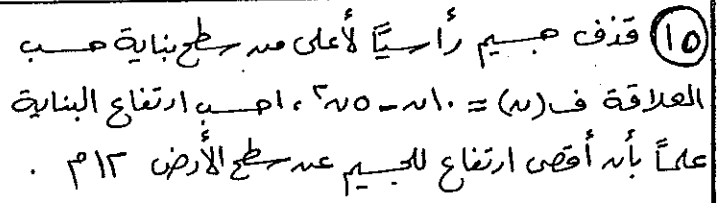 ١٥ قذف جسيم رأسيًّا لأعلى من سطح بناية حسب
العلاقة ف(ن) = ١٠ن - ٥ن٢ ، احسب ارتفاع البناية
علماً بأن أقصى ارتفاع للجسيم عن سطح الأرض ١٢م .